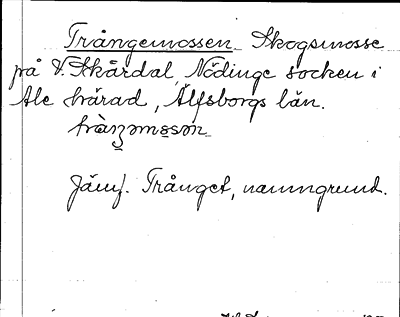 Trångemossen. Skogsmosse
på V. Skårdal, Nödinge socken i
Ale härad, Älfsborgs län.
Jämf. Trånget, namngrund.